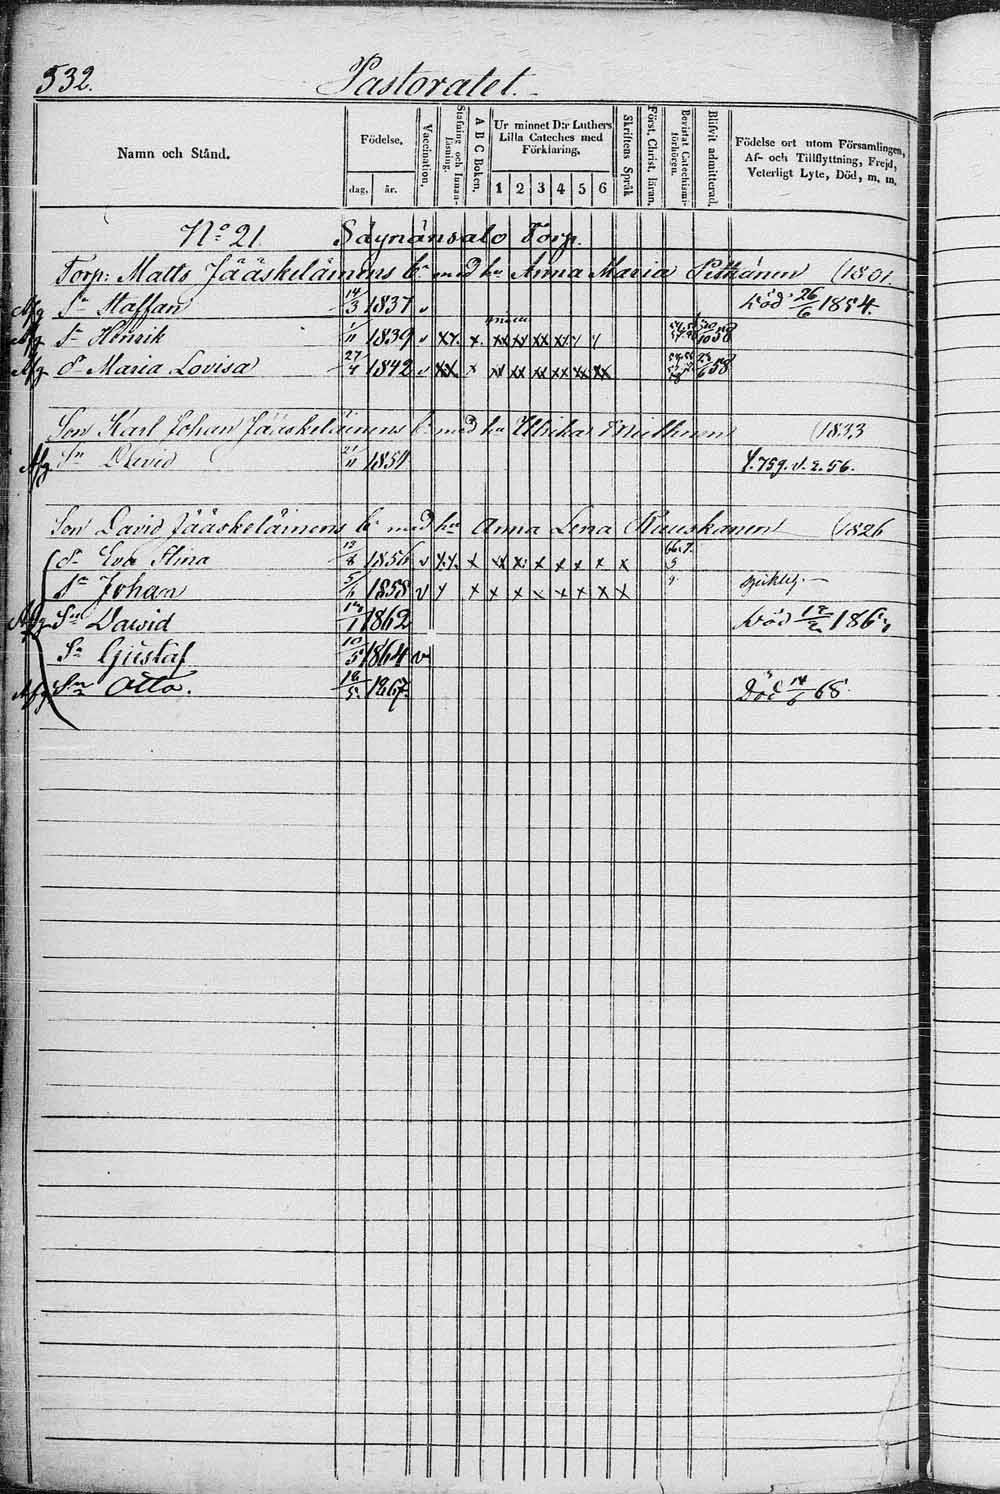 532. Pastoratet.
Namn och Stånd.
Födelse.
dag. år.
Vaccination.
Stafning och Innanläsning.
A B C Boken.
Ur minnet D:r Luthers Lilla Cateches med Förklaring.
1 2 3 4 5 6
Skriftens Språk
Först. Christ. läran.
Bevistat Catechismiförhören.
Blifvit admitterad.
Födelse ort utom Församlingen, Af- och Tillflyttning, Frejd, Veterligt Lyte, Död, m. m.
No 21. Säynänsalo Torp.
Torp: Matts Jääskeläinens b. med hu Anna Maria Pitkänen (1801.
Afg Sn Staffan 14/3 1837 v Död 26/6 1854.
Afg Sn Henrik 1/11 1839 v x x xx xx xx 20/10 58
Afg dr Maria Lovisa 27/4 1842 v xx x xx xx xx xx xx xx 58
Son Karl Johan Jääskeläinens b. med hu Ulrika (1833
Afg Sn David 21/11 1851 f. 759. 56.
Son David Jääskeläinens b. med hu Anna Lena Kauskanen (1826
dr Eva Stina 13/8 1856 v x x x x x x x x
Sn Johan 5/6 1858 v x x x x x x x x sjuklig.
Afg Sn Dawid 1862 Död 186
Sn Gustaf 10/5 1864 v
Afg Sn Otto. 18/5 1867 Död 14/6 68.